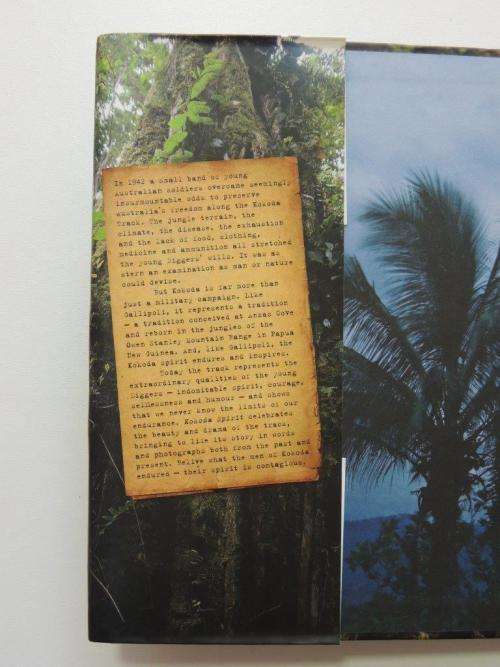 In 1942 a small band of young
Australian soldiers overcame seemingly
insurmountable odds to preserve
Australia's freedom along the Kokoda
Track. The jungle terrain, the
climate, the disease, the exhaustion
and the lack of food, clothing,
medicine and ammunition all stretched
the young Diggers' wills. It was as
stern an examination as man or nature
could devise.
But Kokoda is far more than
just a military campaign. Like
Gallipoli, it represents a tradition
— a tradition conceived at Anzac Cove
and reborn in the jungles of the
Owen Stanley Mountain Range in Papua
New Guinea. And, like Gallipoli, the
Kokoda spirit endures and inspires.
Today, the track represents the
extraordinary qualities of the young
Diggers — indomitable spirit, courage,
selflessness and humour — and shows
that we never know the limits of our
endurance. Kokoda Spirit celebrates
the beauty and drama of the track,
bringing to life its story in words
and photographs both from the past and
present. Relive what the men of Kokoda
endured — their spirit is contagious.